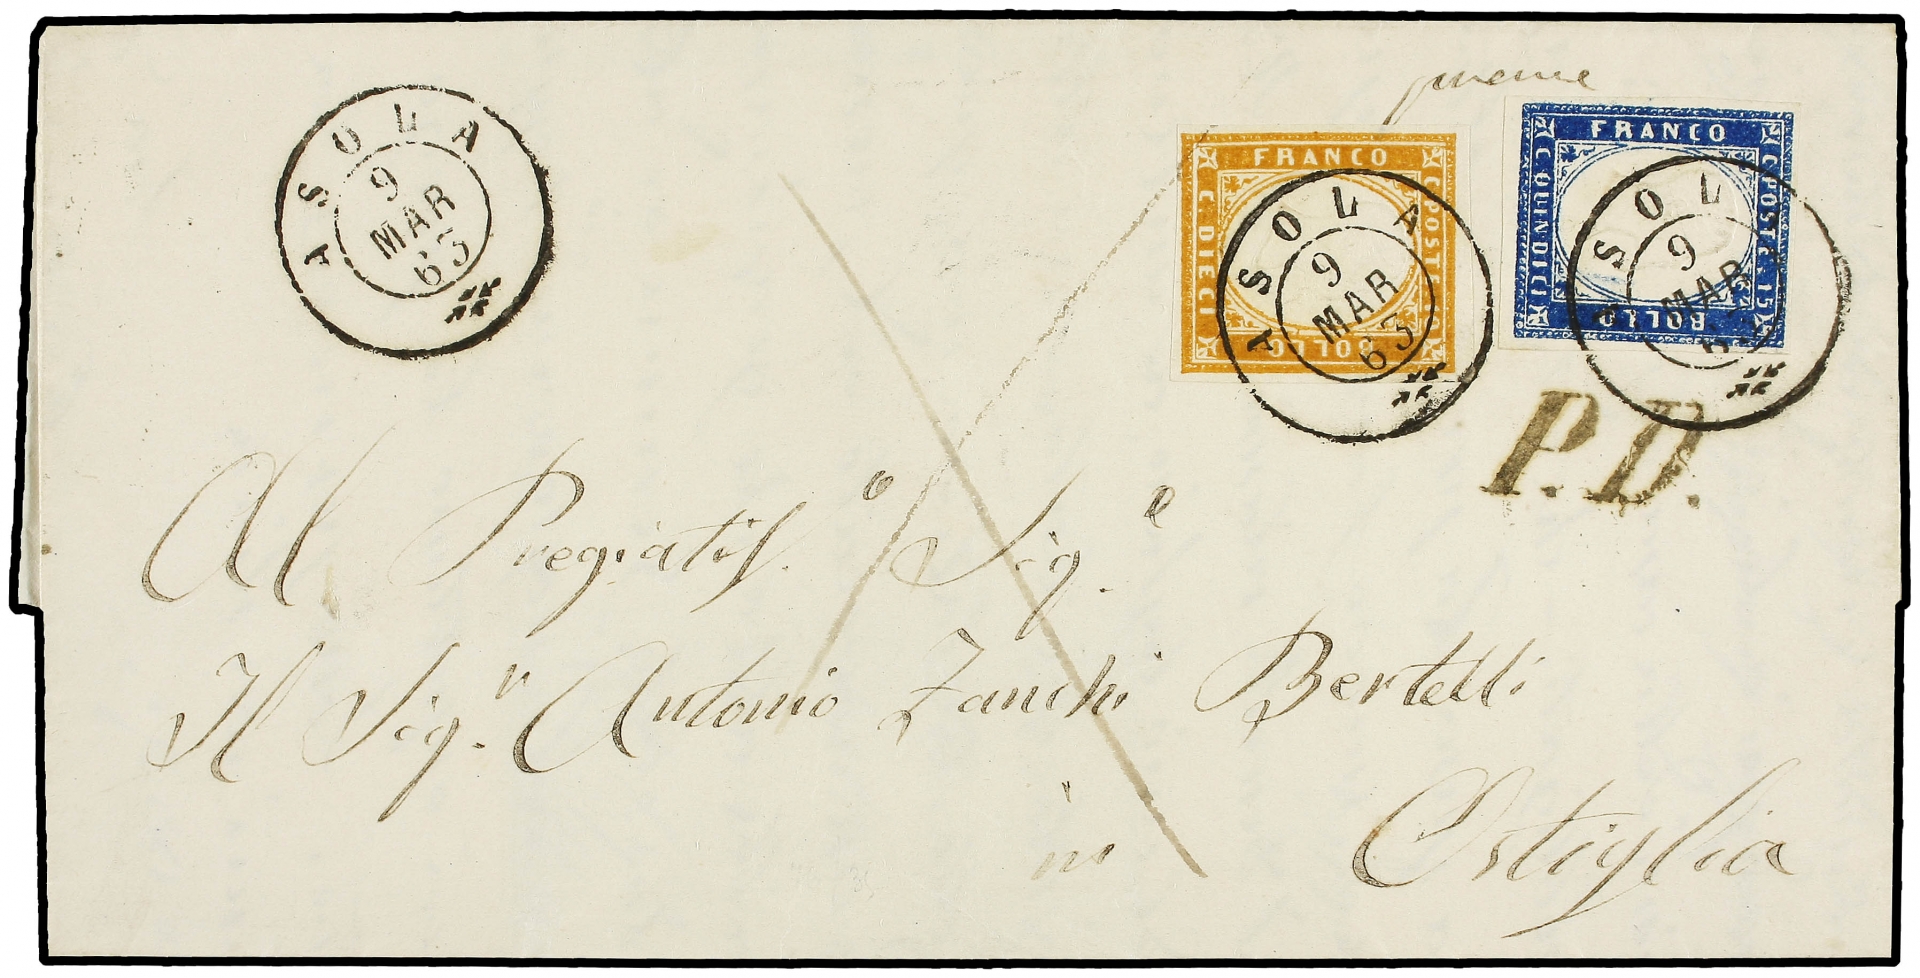 ASOLA
9
MAR
63
franche
FRANCO
C. POSTE 10
BOLLO
C. DIECI
ASOLA
9
MAR
63
FRANCO
C. POSTE 15
BOLLO
C. QUINDICI
ASOL
9
MAR
63
P.D.
Al Pregiatis.o Sig.e
Il Sig.r Antonio Zanchi Bertelli
in Ostiglia